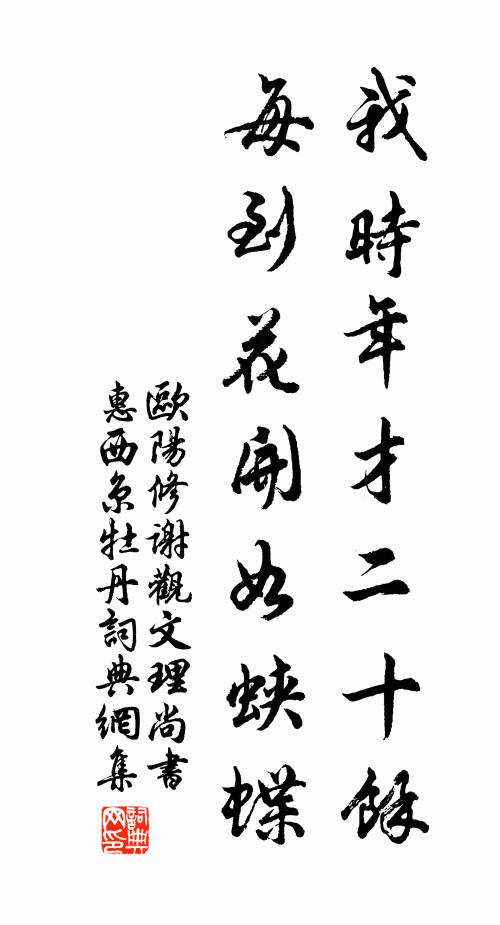 我時年才二十餘
每到花開如蛺蝶
歐陽修謝觀文理尚書
惠西京牡丹詞典網集
詞典網印